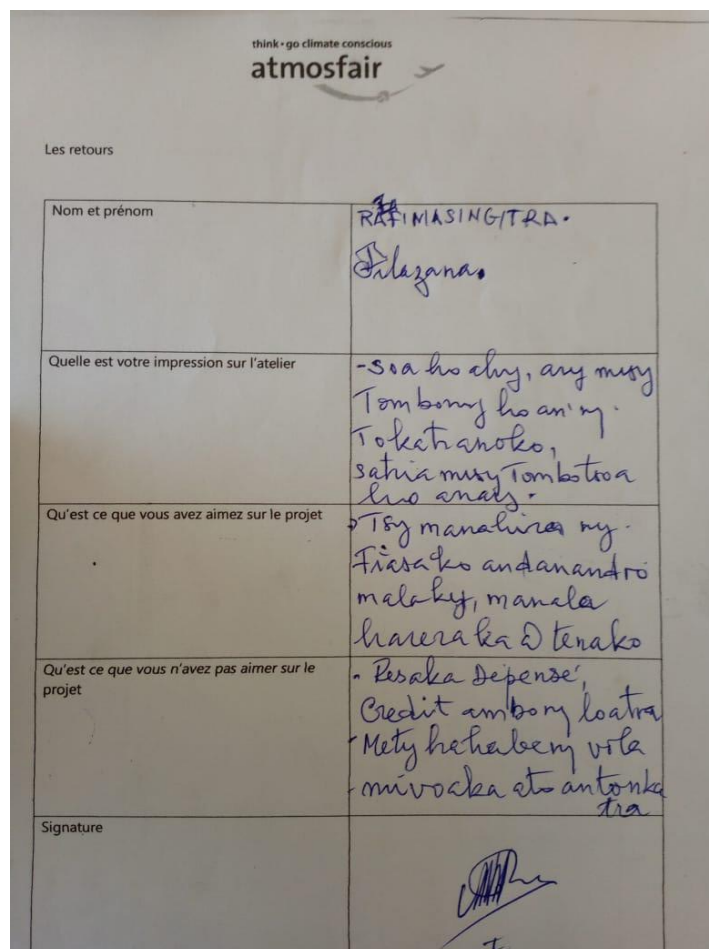 think • go climate conscious
atmosfair
Les retours
Nom et prénom
Filazana.
Quelle est votre impression sur l'atelier
-Soa ho ahy, ary misy
Tombony ho an'ny.
Tokatranoko,
satria misy Tombotsoa
ho anay.
Qu'est ce que vous avez aimez sur le projet
Tsy manahirana ny.
Fiasako andanandro
malaky, manala
hareraka @ tenako
Qu'est ce que vous n'avez pas aimer sur le
projet
- Resaka Depense,
Credit ambony loatra
- Mety hahabeny vola
- mivoaka ato antonka
tra
Signature